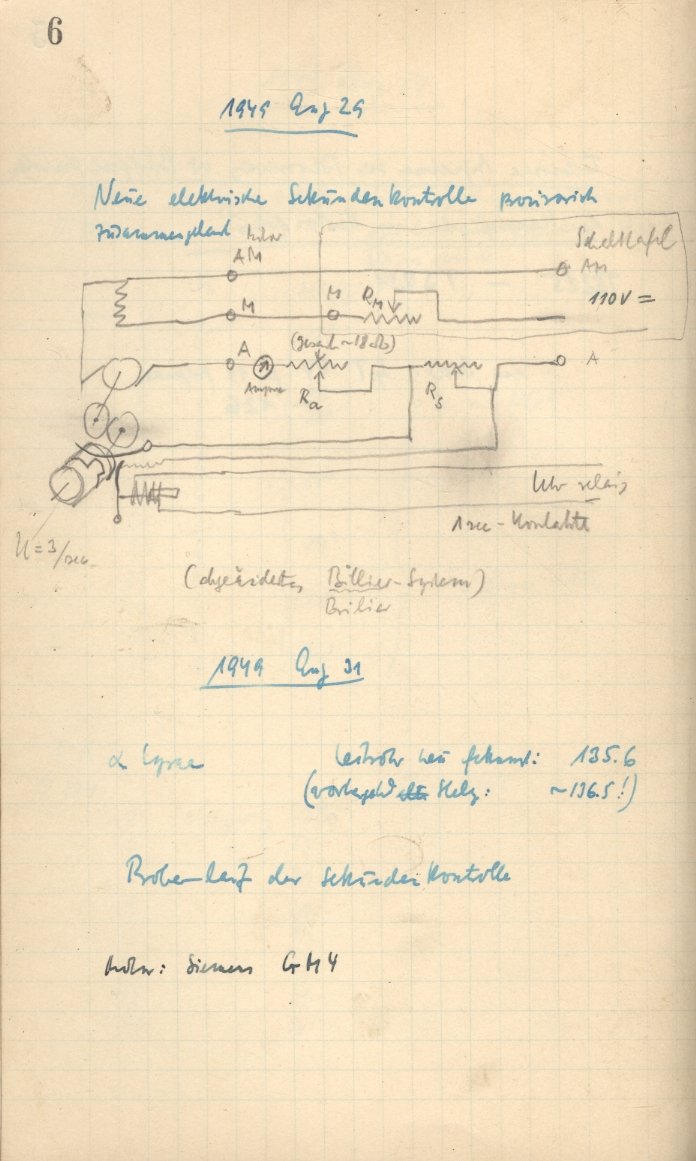 6
1949 Aug 29
Neue elektrische Sekundenkontrolle provisorisch
zusammengebaut
Motor
AM
Schalttafel
AM
M
M
R_M
110V =
A
(gesamt ~18 Ω)
A
Ampere
R_a
R_s
Uhr-relais
1 sec-Kontakte
U=3/sec.
(abgeändertes Billier-System)
Brilier
1949 Aug 31
α Lyrae
Leitrohr neu fokuss.: 135.6
(vorhergehd Stellg: ~136.5!)
Probe-Lauf der Sekundenkontrolle
Motor: Siemens GM4